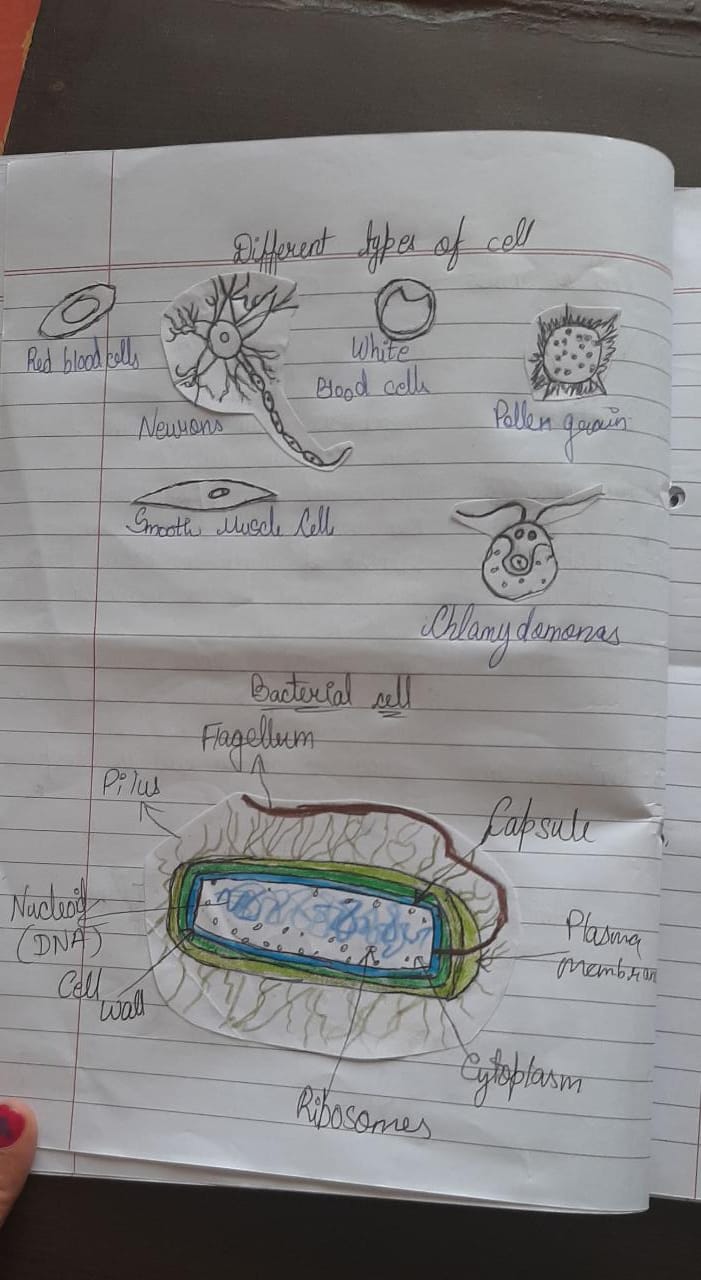 Different types of cell
Red blood cells
Neurons
White
Blood cells
Pollen grain
Smooth Muscle Cell
Chlamydomonas
Bacterial cell
Flagellum
Pilus
Capsule
Nucleoid
(DNA)
Plasma
membran
Cell
wall
Cytoplasm
Ribosomes